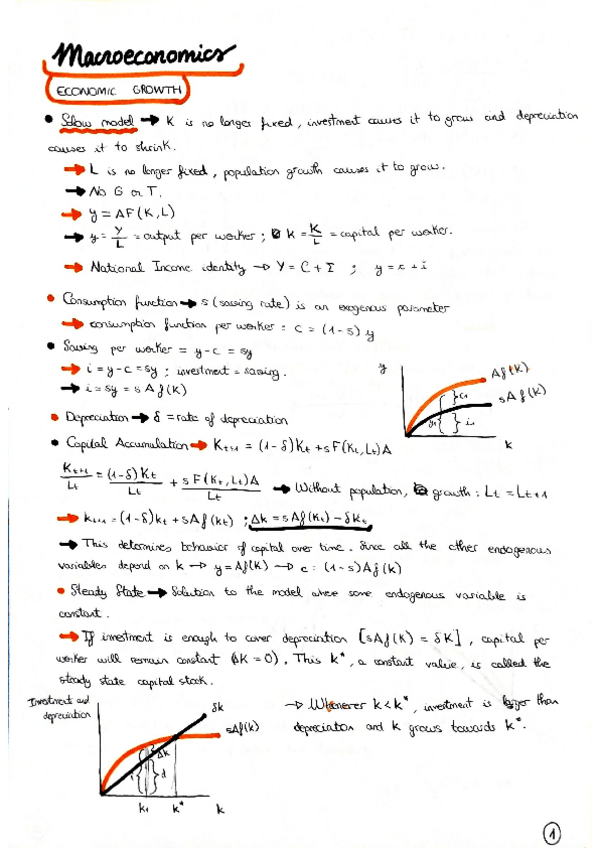 Macroeconomics
ECONOMIC GROWTH
• Solow model → K is no longer fixed, investment causes it to grow and depreciation
causes it to shrink.
→ L is no longer fixed, population growth causes it to grow.
→ No G or T.
→ y = AF(K,L)
→ y = Y/L = output per worker ; k = K/L = capital per worker.
→ National Income identity → Y = C + I ; y = c + i
• Consumption function → s (saving rate) is an exogenous parameter
→ consumption function per worker : c = (1-s) y
• Saving per worker = y-c = sy
→ i = y-c = sy ; investment = saving.
→ i = sy = s A f(k)
y
Af(k)
sAf(k)
c1
y1
i1
k
• Depreciation → δ = rate of depreciation
• Capital Accumulation → Kt+1 = (1-δ)Kt + sF(Kt,Lt)A
Kt+1/Lt = (1-δ)Kt/Lt + sF(Kt,Lt)A/Lt → Without population, growth : Lt = Lt+1
→ kt+1 = (1-δ)kt + sAf(kt) ; Δk = sAf(kt) - δkt
→ This determines behavior of capital over time. Since all the other endogenous
variables depend on k → y = Af(k) → c : (1-s)Af(k)
• Steady State → Solution to the model where some endogenous variable is
constant.
→ If investment is enough to cover depreciation [sAf(k) = δK], capital per
worker will remain constant (ΔK = 0). This k*, a constant value, is called the
steady state capital stock.
Investment and
depreciation
δk
sAf(k)
Δk
i
d
k1 k* k
→ Whenever k < k*, investment is larger than
depreciation and k grows towards k*.
1